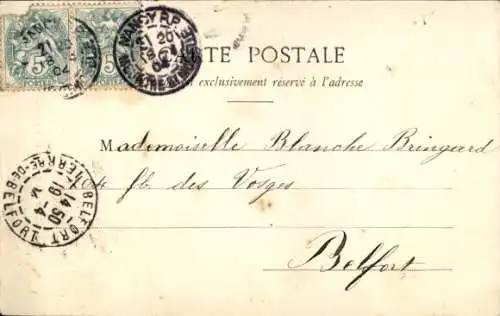 NANCY R.P.
21 20
18 -4
04
MEURTHE-ET-MOSELLE
5 5
CARTE POSTALE
exclusivement réservé à l'adresse
Mademoiselle Blanche Bringard
fb. des Vosges
Belfort
BELFORT
14 50
19 -4
TERRE-DE-BELFORT